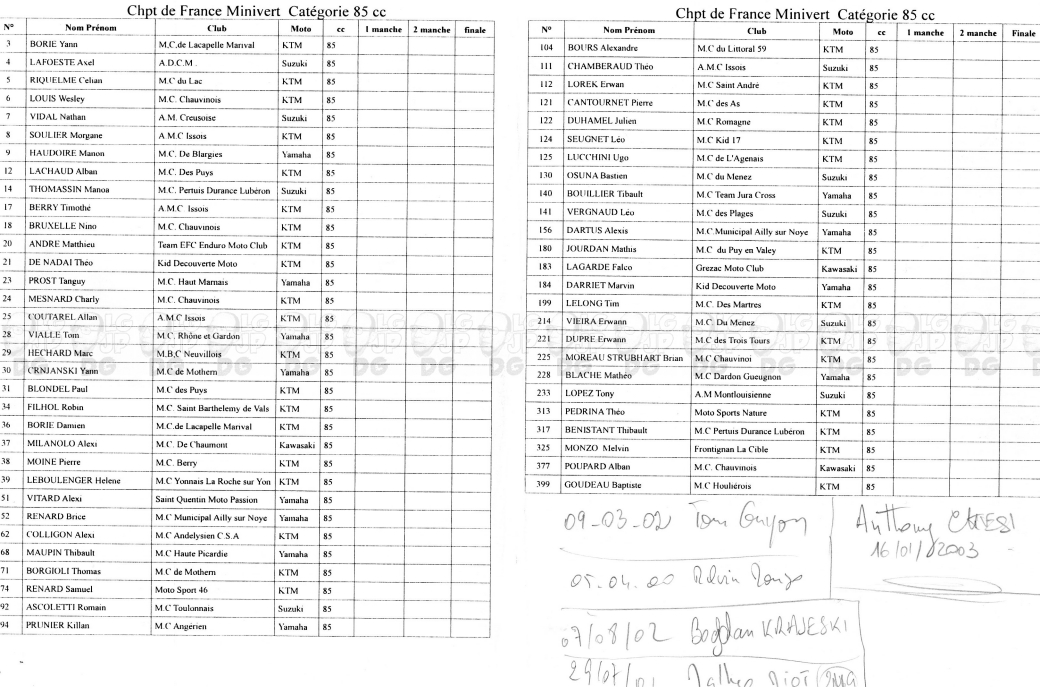 Chpt de France Minivert Catégorie 85 cc
N° Nom Prénom Club Moto cc 1 manche 2 manche finale
3 BORIE Yann M.C.de Lacapelle Marival KTM 85
4 LAFOESTE Axel A.D.C.M . Suzuki 85
5 RIQUELME Celian M.C du Lac KTM 85
6 LOUIS Wesley M.C. Chauvinois KTM 85
7 VIDAL Nathan A.M. Creusoise Suzuki 85
8 SOULIER Morgane A.M.C Issois KTM 85
9 HAUDOIRE Manon M.C. De Blargies Yamaha 85
12 LACHAUD Alban M.C. Des Puys KTM 85
14 THOMASSIN Manoa M.C. Pertuis Durance Lubéron Suzuki 85
17 BERRY Timothé A.M.C Issois KTM 85
18 BRUXELLE Nino M.C. Chauvinois KTM 85
20 ANDRE Matthieu Team EFC Enduro Moto Club KTM 85
21 DE NADAI Théo Kid Decouverte Moto KTM 85
23 PROST Tanguy M.C. Haut Marnais Yamaha 85
24 MESNARD Charly M.C. Chauvinois KTM 85
25 COUTAREL Allan A.M.C Issois KTM 85
28 VIALLE Tom M.C. Rhône et Gardon Yamaha 85
29 HECHARD Marc M.B,C Neuvillois KTM 85
30 CRNJANSKI Yann M.C de Mothern Yamaha 85
31 BLONDEL Paul M.C des Puys KTM 85
34 FILHOL Robin M.C. Saint Barthelemy de Vals KTM 85
36 BORIE Damien M.C.de Lacapelle Marival KTM 85
37 MILANOLO Alexi M.C. De Chaumont Kawasaki 85
38 MOINE Pierre M.C. Berry KTM 85
39 LEBOULENGER Helene M.C Yonnais La Roche sur Yon KTM 85
51 VITARD Alexi Saint Quentin Moto Passion Yamaha 85
52 RENARD Brice M.C Municipal Ailly sur Noye Yamaha 85
62 COLLIGON Alexi M.C Andelysien C.S.A KTM 85
68 MAUPIN Thibault M.C Haute Picardie Yamaha 85
71 BORGIOLI Thomas M.C de Mothern KTM 85
74 RENARD Samuel Moto Sport 46 KTM 85
92 ASCOLETTI Romain M.C Toulonnais Suzuki 85
94 PRUNIER Killan M.C Angérien Yamaha 85
Chpt de France Minivert Catégorie 85 cc
N° Nom Prénom Club Moto cc 1 manche 2 manche Finale
104 BOURS Alexandre M.C du Littoral 59 KTM 85
111 CHAMBERAUD Théo A.M.C Issois Suzuki 85
112 LOREK Erwan M.C Saint André KTM 85
121 CANTOURNET Pierre M.C des As KTM 85
122 DUHAMEL Julien M.C Romagne KTM 85
124 SEUGNET Léo M.C Kid 17 KTM 85
125 LUCCHINI Ugo M.C de L'Agenais KTM 85
130 OSUNA Bastien M.C du Menez Suzuki 85
140 BOUILLIER Tibault M.C Team Jura Cross Yamaha 85
141 VERGNAUD Léo M.C des Plages Suzuki 85
156 DARTUS Alexis M.C.Municipal Ailly sur Noye Yamaha 85
180 JOURDAN Mathis M.C du Puy en Valey KTM 85
183 LAGARDE Falco Grezac Moto Club Kawasaki 85
184 DARRIET Marvin Kid Decouverte Moto Yamaha 85
199 LELONG Tim M.C. Des Martres KTM 85
214 VIEIRA Erwann M.C. Du Menez Suzuki 85
221 DUPRE Erwann M.C des Trois Tours KTM 85
225 MOREAU STRUBHART Brian M.C Chauvinoi KTM 85
228 BLACHE Mathéo M.C Dardon Gueugnon Yamaha 85
233 LOPEZ Tony A.M Montlouisienne Suzuki 85
313 PEDRINA Théo Moto Sports Nature KTM 85
317 BENISTANT Thibault M.C Pertuis Durance Lubéron KTM 85
325 MONZO Melvin Frontignan La Cible KTM 85
377 POUPARD Alban M.C. Chauvinois Kawasaki 85
399 GOUDEAU Baptiste M.C Houliérois KTM 85
09-03-02 Tom Guyon
Anthony
16/01/2003
05.04.00
07/08/02 Bogdan KRAJESKI
29/07/01
DG